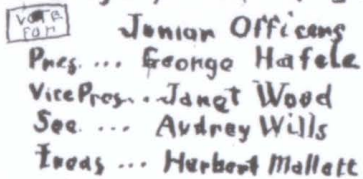 VOTE FOR
Junior Officers
Pres. ... George Hafele
Vice Pres... Janet Wood
Sec. ... Audrey Wills
Treas ... Herbert Mallett